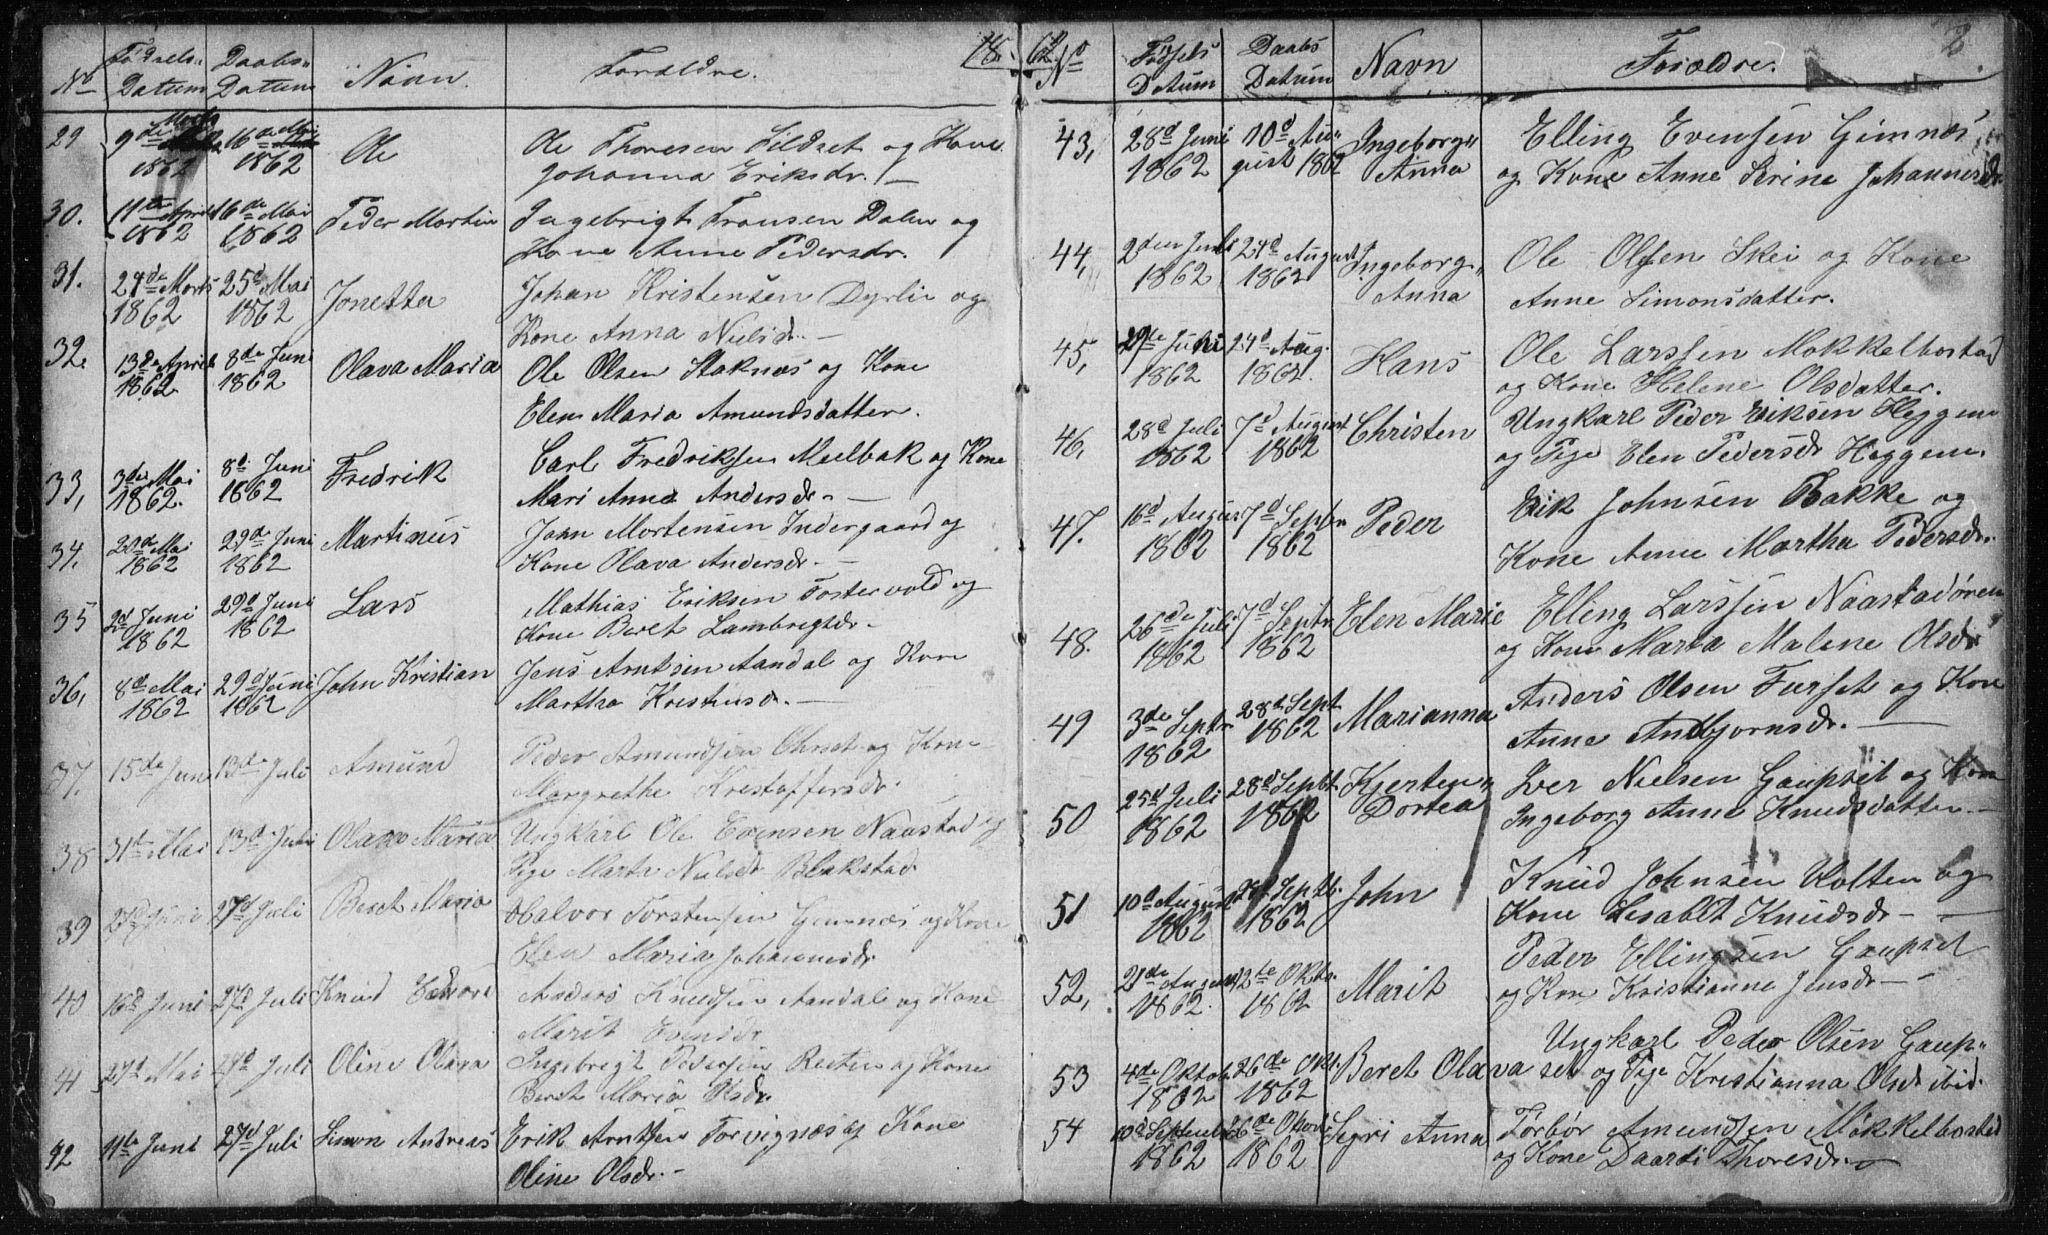 18
62.
2.
No Fødsels- Datum Daabs- Datum Navn. Forældre.
29 9de Marts 1862 16de Mai 1862 Ole Ole Thoresen Sildset og Kone
Johanna Eriksdr. —
30. 11te April 1862 16de Mai 1862 Peder Martin Ingebrigt Fransen Dalen og
Kone Anne Pedersdr.
31. 24de Marts 1862 25d Mai 1862 Jonetta Johan Kristensen Dyrlie og
Kone Anna Nielsdr. —
32. 13de April 1862 8de Juni 1862 Olava Maria Ole Olsen Staknæs og Kone
Elen Maria Amundsdatter.
33, 3de Mai 1862. 8d Juni 1862 Fredrik Carl Fredriksen Melbak og Kone
Mari Anna Andersdr. —
34. Mai 1862 29de Juni 1862 Martinus John Mortensen Indergaard og
Kone Olava Andersdr. —
35 2d Juni 1862 29d Juni 1862 Lars Mathias Eriksen Fostervold og
Kone Beret Lambregtsdr.
36, 8de Mai 1862 29d Juni 1862 John Kristian Jens Arntsen Aandal og Kone
Martha Kristensdr. —
37. 15de Juni 13de Juli Amund Peder Amundsen Ohrset og Kone
Margrethe Kristoffersdr.
38 31te Mai 13d Juli Olava Maria Ungkarl Ole Evensen Naastad og
Pige Marta Nielsdr Blakstad.
39 Juni 27d Juli Beret Maria Halvor Torstensen Gimnæs og Kone
Elen Maria Johannesdr
40 16d Juni 27d Juli Knud Edvart Anders Knudsen Aandal og Kone
Marit Evensdr
41 27d Mai 27d Juli Oline Olava Ingebregt Pedersen Reiten og Kone
Beret Maria Olsdr.
42 11te Juni 27d Juli Simon Andreas Erik Arntsen Torvignæs og Kone
Oline Olsdr. —
No Fødsels Datum Daabs Datum Navn Forældre.
43, 28d Juni 1862 10d August 1862 Ingeborg Anna Elling Evensen Gimnæs
og Kone Anne Serine Johannesdr.
44, 2den Juli 1862 24d August 1862 Ingeborg Anna Ole Olsen Skei og Kone
Anne Simonsdatter.
45, 29de Juni 1862 24d Aug. 1862. Hans Ole Larssen Mokkelbostad
og Kone Helene Olsdatter.
46, 28d Juli 1862 7d August 1862 Christen Ungkarl Peder Eriksen Heggem
og Pige Elen Pedersdr Heggem.
47. 16d August 1862 7d Septbr 1862 Peder Erik Johnsen Bakke og
Kone Anne Martha Pedersdr.
48. 26de Juli 1862 7d Septr 1862 Elen Marie Elling Larssen Naastadøren
og Kone Marta Malene Olsdr
49 3de Septr. 1862 28d Sept. 1862 Marianna Anders Olsen Furset og Kone
Anne Andbjornsdr. —
50 25d Juli 1862 28d Septbr. 1862 Kjersten Dortea Iver Nielsen Gaupset og Kone
Ingeborg Anne Knudsdatter. —
51 10d August 1862 28d Septb. 1862 John Knud Johnsen Holten og
Kone Lisabet Knudsdr — —
52, 21de August 1862. 12te Oktr. 1862 Marit Peder Ellingsen Gaupset
og Kone Kristianne Jensdr — —
53 4de Oktob. 1862 26de Okt. 1862 Beret Olava Ungkarl Peder Olsen Gaup-
set og Pige Kristianna Olsdr ibid.
54 10d September 1862 26de Oktob 1862 Segri Anna Torbør Amundsen Mokkelbostad
og Kone Daardi Thoresdr. —